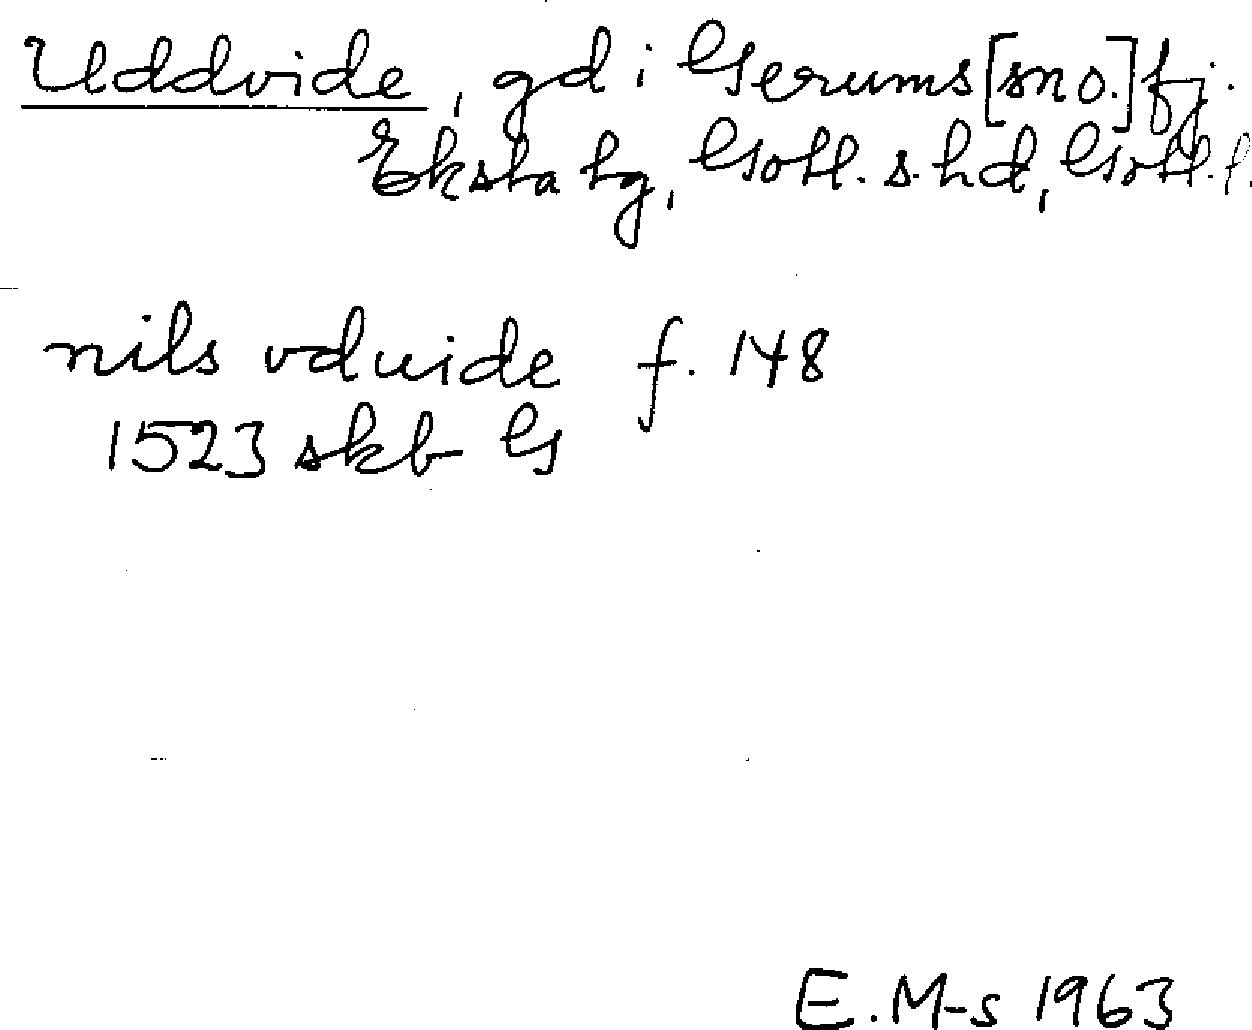 Uddvide, gd i Gerums [sn o.] fj.
Eksta tg, Gotl. s. hd, Gotl. l.
nils vduide f. 148
1523 skb G
E. M-s 1963